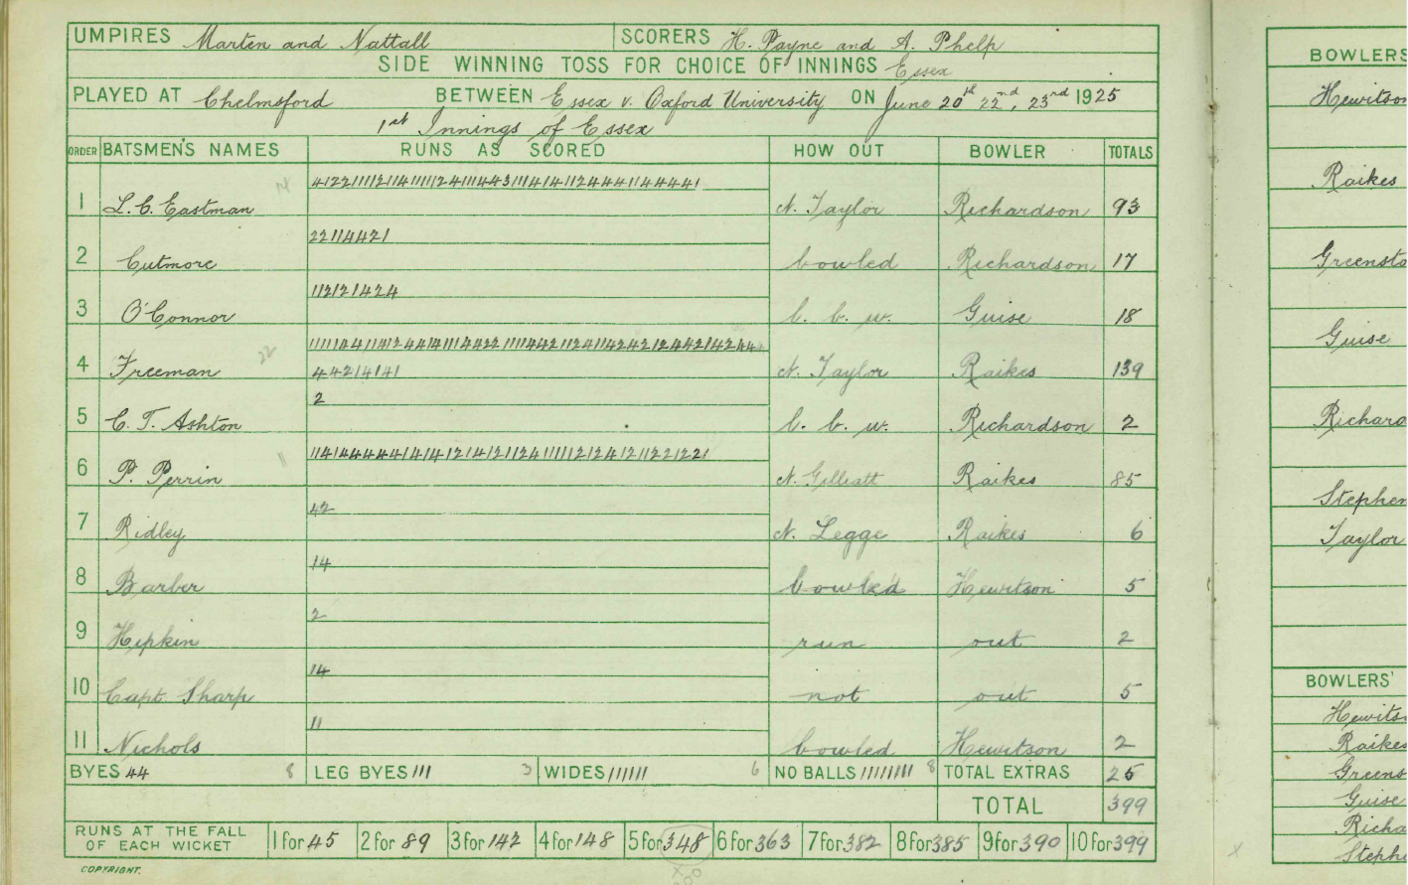 UMPIRES Marten and Nattall SCORERS H. Payne and A. Phelp
SIDE WINNING TOSS FOR CHOICE OF INNINGS Essex
PLAYED AT Chelmsford BETWEEN Essex v. Oxford University ON June 20th 22nd, 23rd 1925
1st Innings of Essex
ORDER BATSMEN'S NAMES RUNS AS SCORED HOW OUT BOWLER TOTALS
1 L. C. Eastman ct. Taylor Richardson 93
22114421
2 Cutmore bowled Richardson 17
112121424
3 O'Connor l. b. w. Guise 18
4 Freeman 44214141 ct. Taylor Raikes 139
2
5 C. T. Ashton l. b. w. Richardson 2
6 P. Perrin ct. Gilliatt Raikes 85
42
7 Ridley ct. Legge Raikes 6
14
8 Barber bowled Hewitson 5
2
9 Hipkin run out 2
14
10 Capt. Sharp not out 5
11
11 Nichols bowled Hewitson 2
BYES 44 8 LEG BYES 111 3 WIDES 111111 6 NO BALLS 11111111 8 TOTAL EXTRAS 25
TOTAL 399
RUNS AT THE FALL OF EACH WICKET 1 for 45 2 for 89 3 for 142 4 for 148 5 for 348 6 for 363 7 for 382 8 for 385 9 for 390 10 for 399
COPYRIGHT.
BOWLERS
Hewitson
Raikes
Greensto
Guise
Richard
Stephen
Taylor
BOWLERS'
Hewits
Raikes
Greens
Guise
Richa
Steph